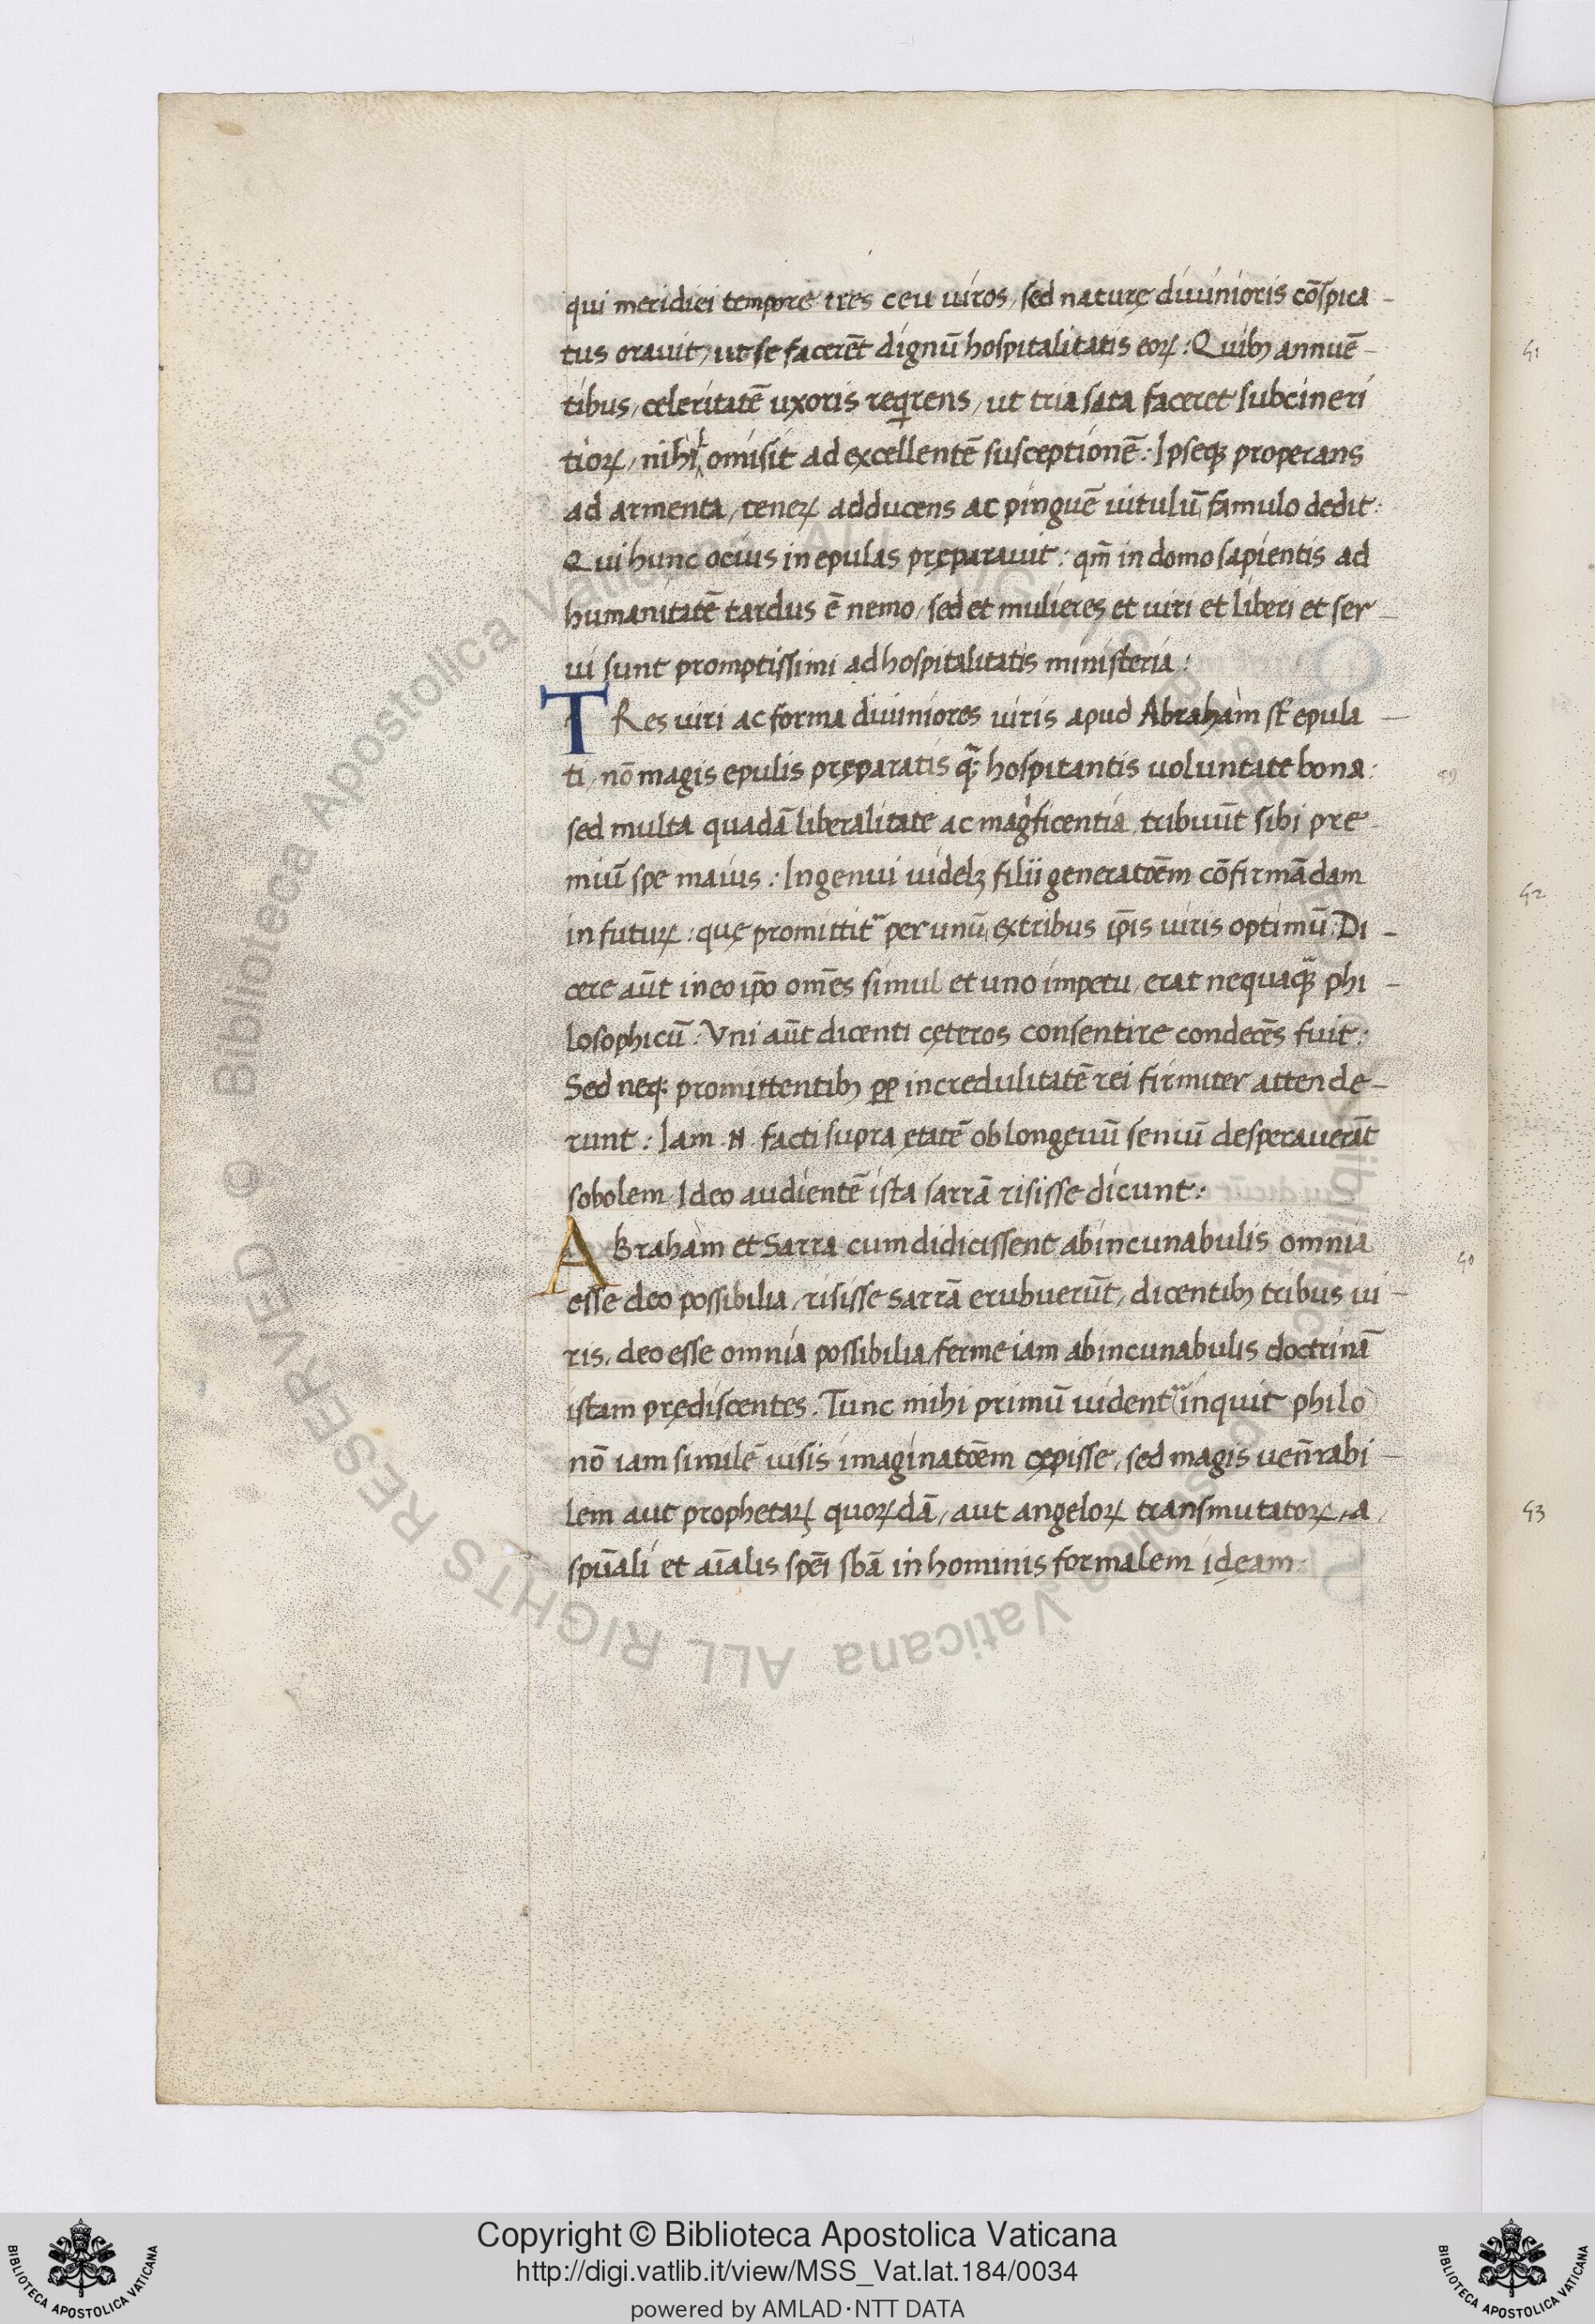 qui meridiei tempore tres ceu uiros, sed naturę diuinioris cōspica-
tus orauit, ut se facerēt dignū hospitalitatis eoꝝ: Quibꝫ annuē-
tibus, celeritatē uxoris reqͥrens, ut tria sata faceret subcineri
tioꝝ, nihil omisit ad excellentē susceptionē: Ipseqꝫ properans
ad armenta, teneꝝ adducens ac pinguē uitulū, famulo dedit:
Qui hunc ocius in epulas pręparauit: qm̄ in domo sapientis ad
humanitatē tardus ē nemo, sed et mulieres et uiri et liberi et ser-
ui sunt promptissimi ad hospitalitatis ministeria:
TRes uiri ac forma diuiniores uiris apud Abraham st̄ epula-
ti, nō magis epulis pręparatis qᷓꝫ hospitantis uoluntate bona:
sed multa quadā liberalitate ac magͥficentia, tribuūt sibi pre
miū spe maius: Ingenui uidelꝫ filii generatōem cōfirmādam
in futuꝝ: quę promittitᷣ per unū ex tribus ip̄is uiris optimū: Di-
cere aūt in eo ip̄o om̄es simul et uno impetu, erat nequaqᷓꝫ phi-
losophicū: Vni aūt dicenti cęteros consentire condecēs fuit:
Sed neqꝫ promittentibꝫ ꝓꝑ incredulitatē rei firmiter attende-
runt: Iam .N. facti supra ętatē ob longęuū seniū desperauerāt
sobolem. Ideo audientē ista sarrā risisse dicunt:
ABraham et Sarra cum didicissent ab incunabulis omnia
esse deo possibilia, risisse Sarrā erubuerūt, dicentibꝫ tribus ui-
ris, deo esse omnia possibilia, ferme iam ab incunabulis doctrinā
istam prędiscentes. Tunc mihi primū uidentᷣ (inquit philo)
nō iam similē uisis imaginatōem cępisse, sed magis ven̄rabi-
lem aut prophetaꝝ quoꝝdā, aut angeloꝝ transmutatoꝝ, a
spūali et aīalis spēi sbā in hominis formalem idęam:
51
52
50
53
Copyright © Biblioteca Apostolica Vaticana
http://digi.vatlib.it/view/MSS_Vat.lat.184/0034
powered by AMLAD·NTT DATA
BIBLIOTECA APOSTOLICA VATICANA
BIBLIOTECA APOSTOLICA VATICANA
© Biblioteca Apostolica Vaticana ALL RIGHTS RESERVED
© Biblioteca Apostolica Vaticana ALL RIGHTS RESERVED